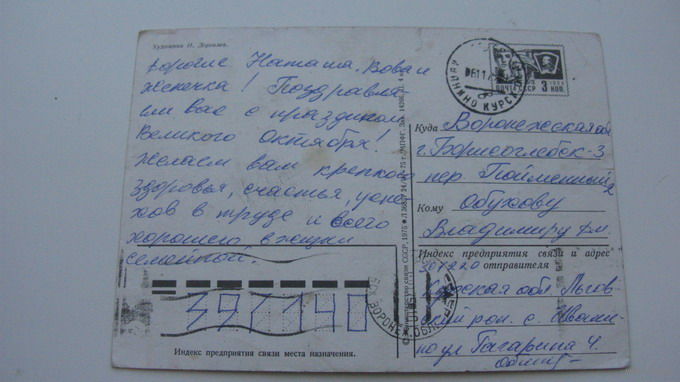 Художник Н. Дорохова.
Дорогие Наташа, Вова и
Женечка! Поздравля-
ем вас с праздником
Великого Октября!
Желаем вам крепкого
здоровья, счастья, успе-
хов в труде и всего
хорошего в жизни
семейной.
ПОЧТА СССР 3 КОП.
КУРСК
Куда Воронежская обл
г. Борисоглебск-3
пер. Пойменный 2
Кому Обухову
Владимиру Дм.
Индекс предприятия связи и адрес
отправителя
307220
Курская обл Льгов-
ский рон. с. Ивани-
но ул Гагарина 4.
397140
ВОРОНЕЖ
Индекс предприятия связи места назначения.
связи СССР, 1975